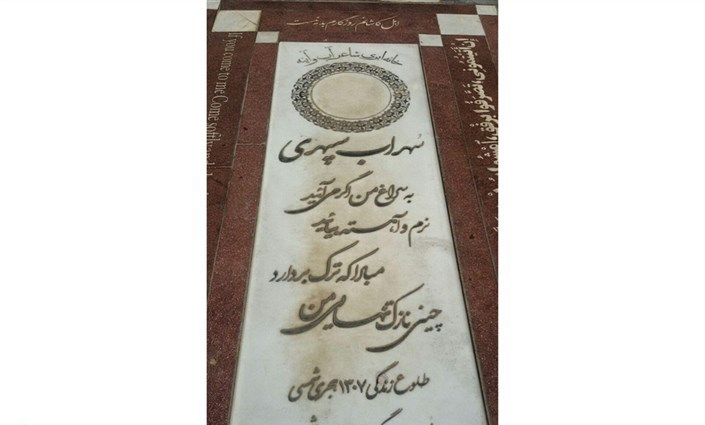 اهل کاشانم روزگارم بد نیست
خانه ابدی شاعر آب و آینه
سهراب سپهری
به سراغ من اگر می آئید
نرم و آهسته بیائید
مبادا که ترک بردارد
چینی نازک تنهایی من
طلوع زندگی ۱۳۰۷ هجری شمسی
If you come to me Come softly